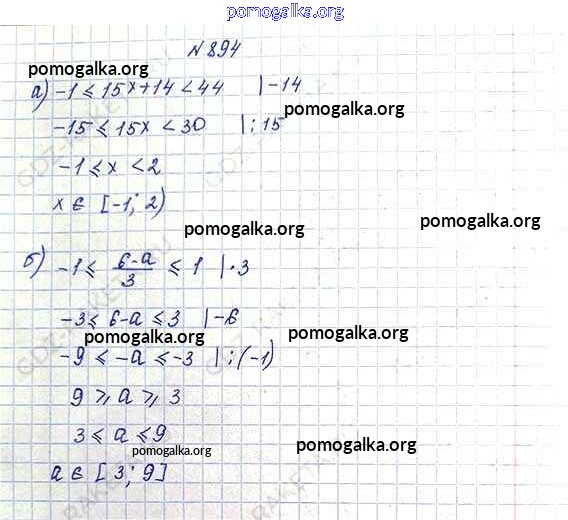 pomogalka.org
N 894
pomogalka.org
а) -1 ≤ 15x+14 < 44 |-14
pomogalka.org
-15 ≤ 15x < 30 |:15
-1 ≤ x < 2
x ∈ [-1; 2)
pomogalka.org pomogalka.org
б) -1 ≤ (6-a)/3 ≤ 1 |·3
-3 ≤ 6-a ≤ 3 |-6
pomogalka.org pomogalka.org
-9 ≤ -a ≤ -3 |:(-1)
9 ≥ a ≥ 3
3 ≤ a ≤ 9
pomogalka.org pomogalka.org
a ∈ [3; 9]